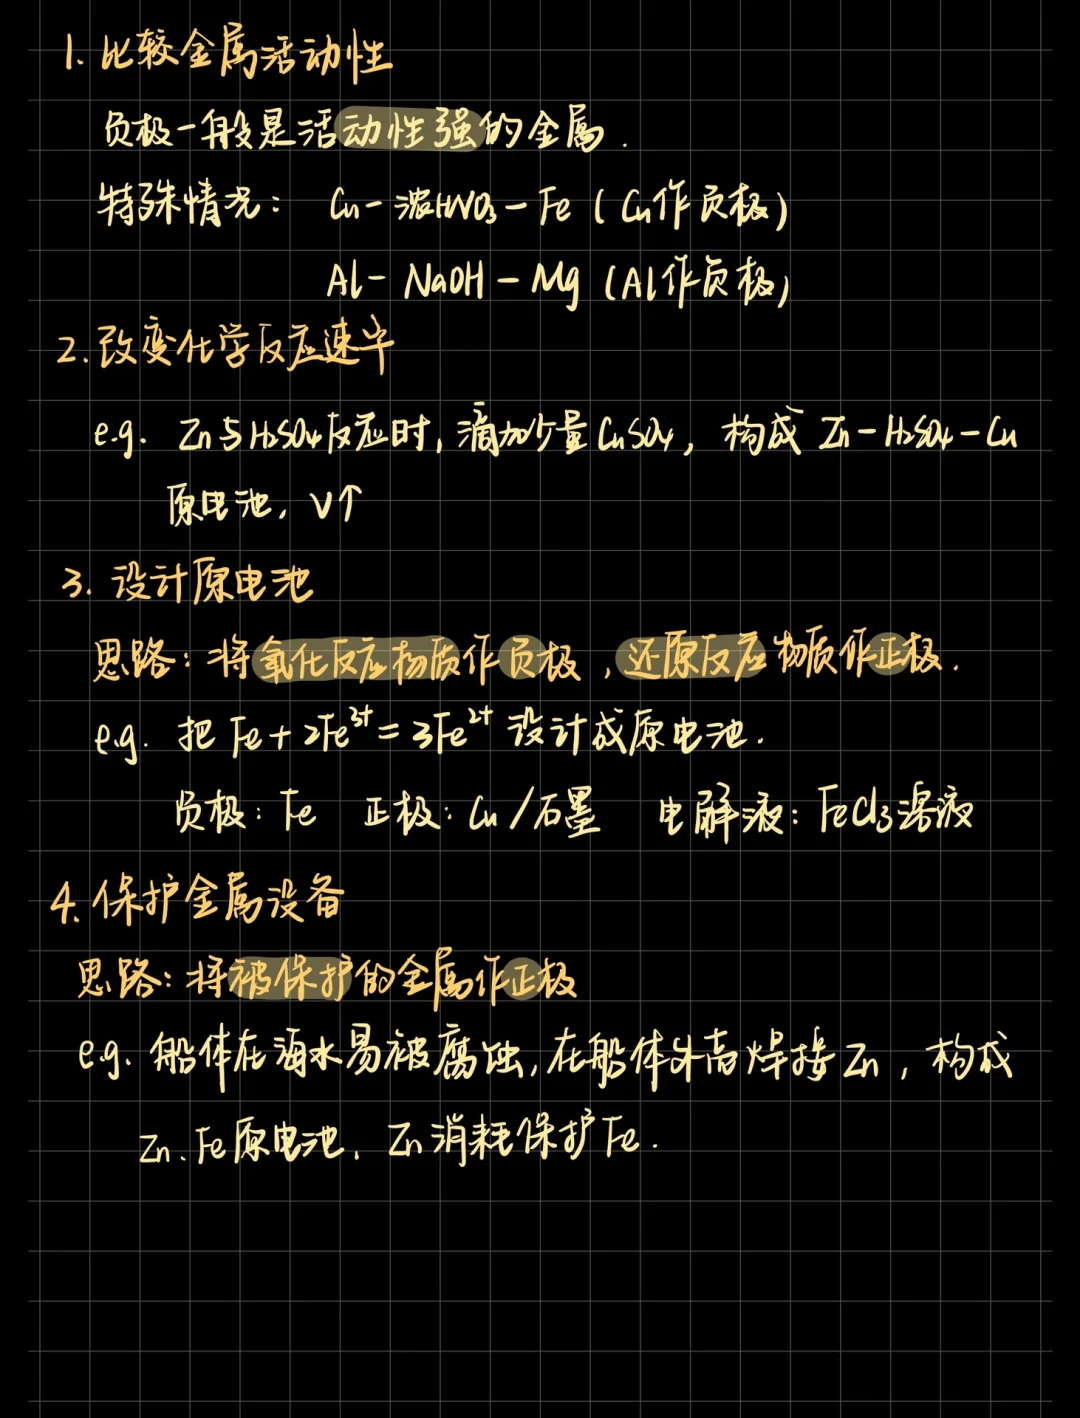 1. 比较金属活动性
负极一般是活动性强的金属.
特殊情况： Cu－浓HNO₃－Fe（Cu作负极）
Al－NaOH－Mg（Al作负极）
2. 改变化学反应速率
e.g. Zn与H₂SO₄反应时，滴加少量CuSO₄，构成 Zn－H₂SO₄－Cu
原电池，V↑
3. 设计原电池
思路：将氧化反应物质作负极，还原反应物质作正极.
e.g. 把 Fe+2Fe³⁺=3Fe²⁺ 设计成原电池.
负极：Fe 正极：Cu/石墨 电解液：FeCl₃溶液
4. 保护金属设备
思路：将被保护的金属作正极
e.g. 船体在海水易被腐蚀，在船体外高焊接 Zn，构成
Zn、Fe原电池，Zn消耗保护Fe.